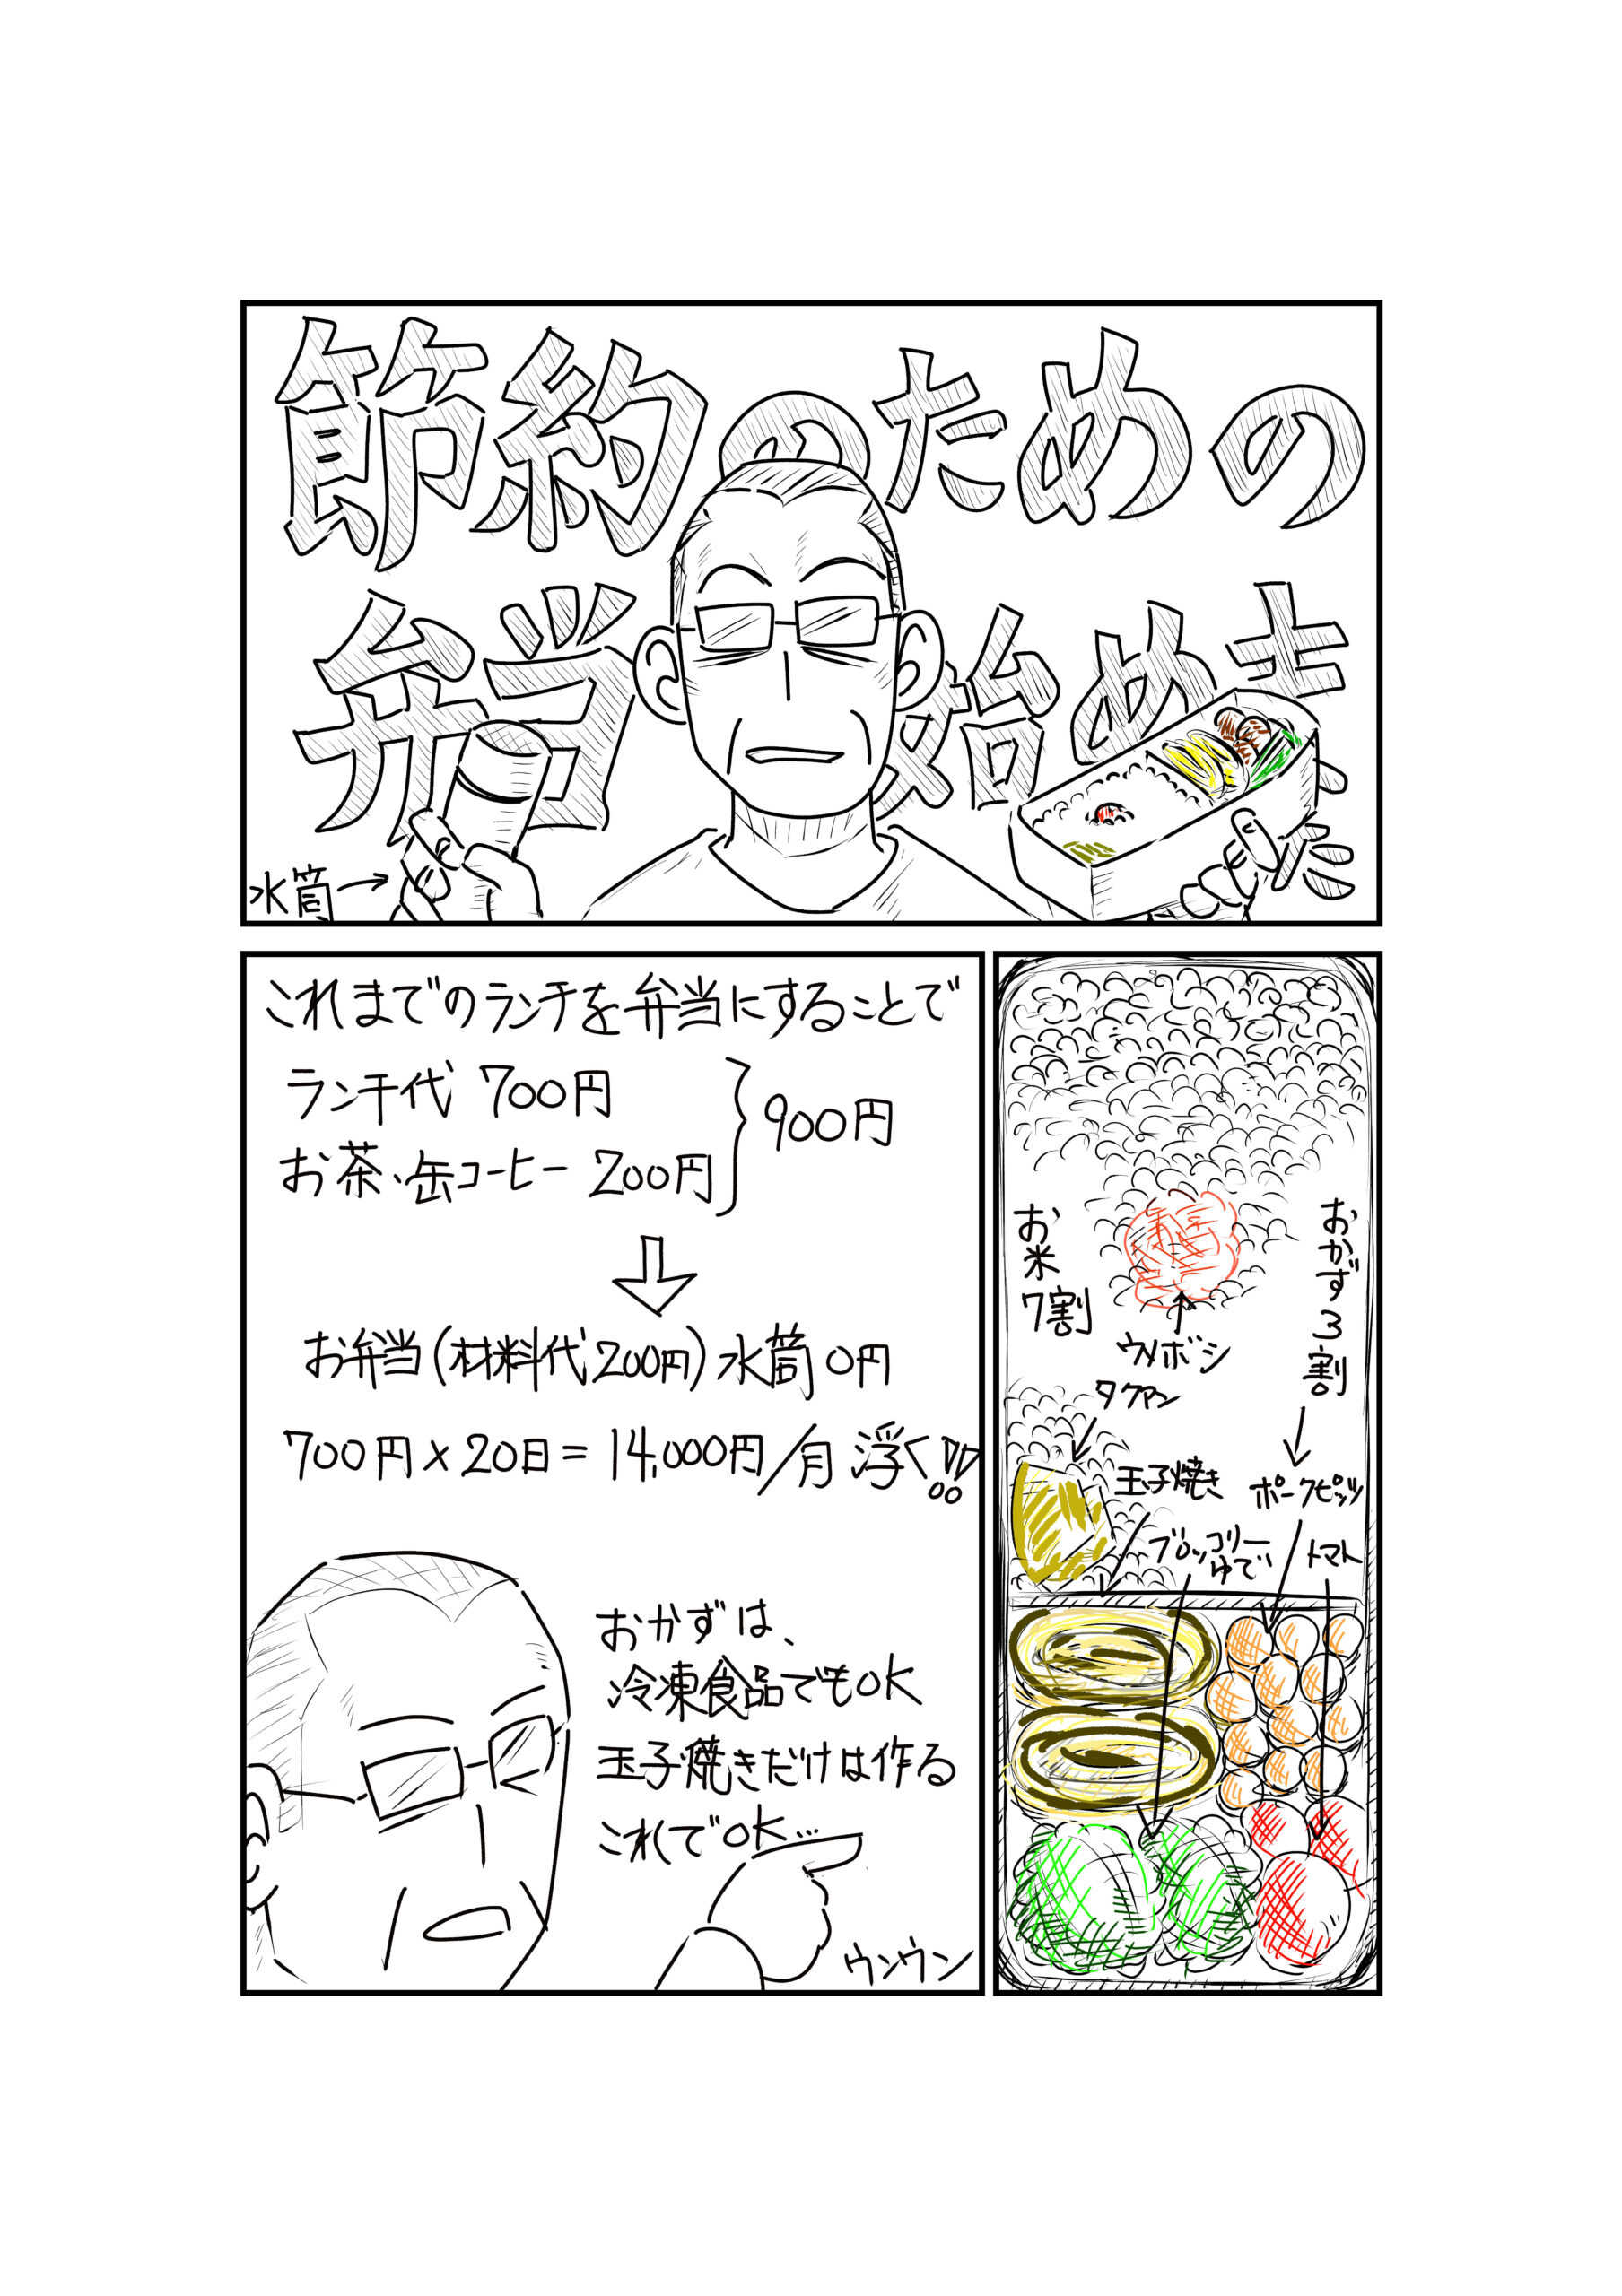 節約のための
弁当始めました
水筒
お米7割
おかず3割
ウメボシ
タクアン
玉子焼き
ポークピッツ
ブロッコリー
ゆで
トマト
これまでのランチを弁当にすることで
ランチ代 700円
お茶・缶コーヒー 200円
900円
お弁当(材料代200円)水筒0円
700円×20日=14,000円/月 浮く!!
おかずは、
冷凍食品でもOK
玉子焼きだけは作る
これでOK…
ウンウン